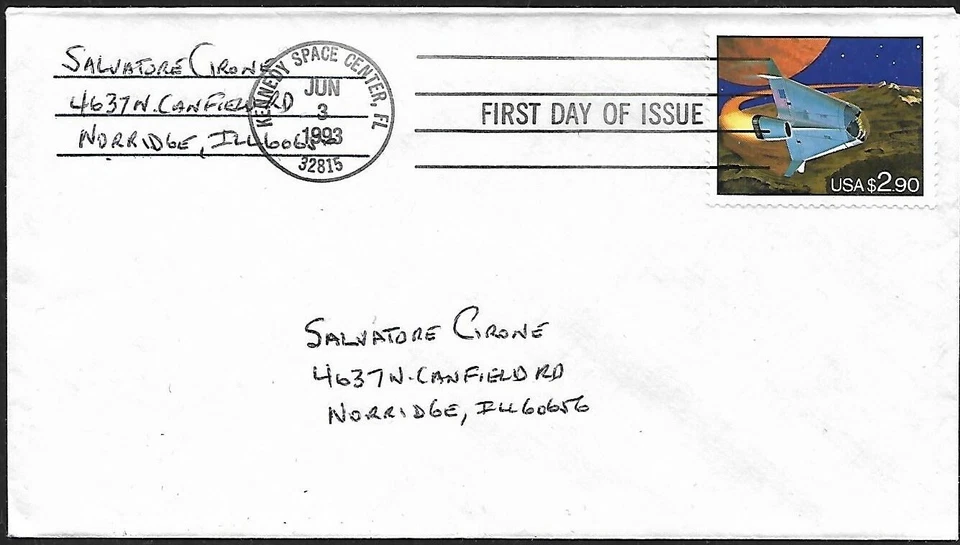 SALVATORE CIRONE
4637 N. CANFIELD RD
NORRIDGE, ILL 60656
KENNEDY SPACE CENTER, FL
JUN
3
1993
32815
FIRST DAY OF ISSUE
USA $2.90
SALVATORE CIRONE
4637 N. CANFIELD RD
NORRIDGE, ILL 60656